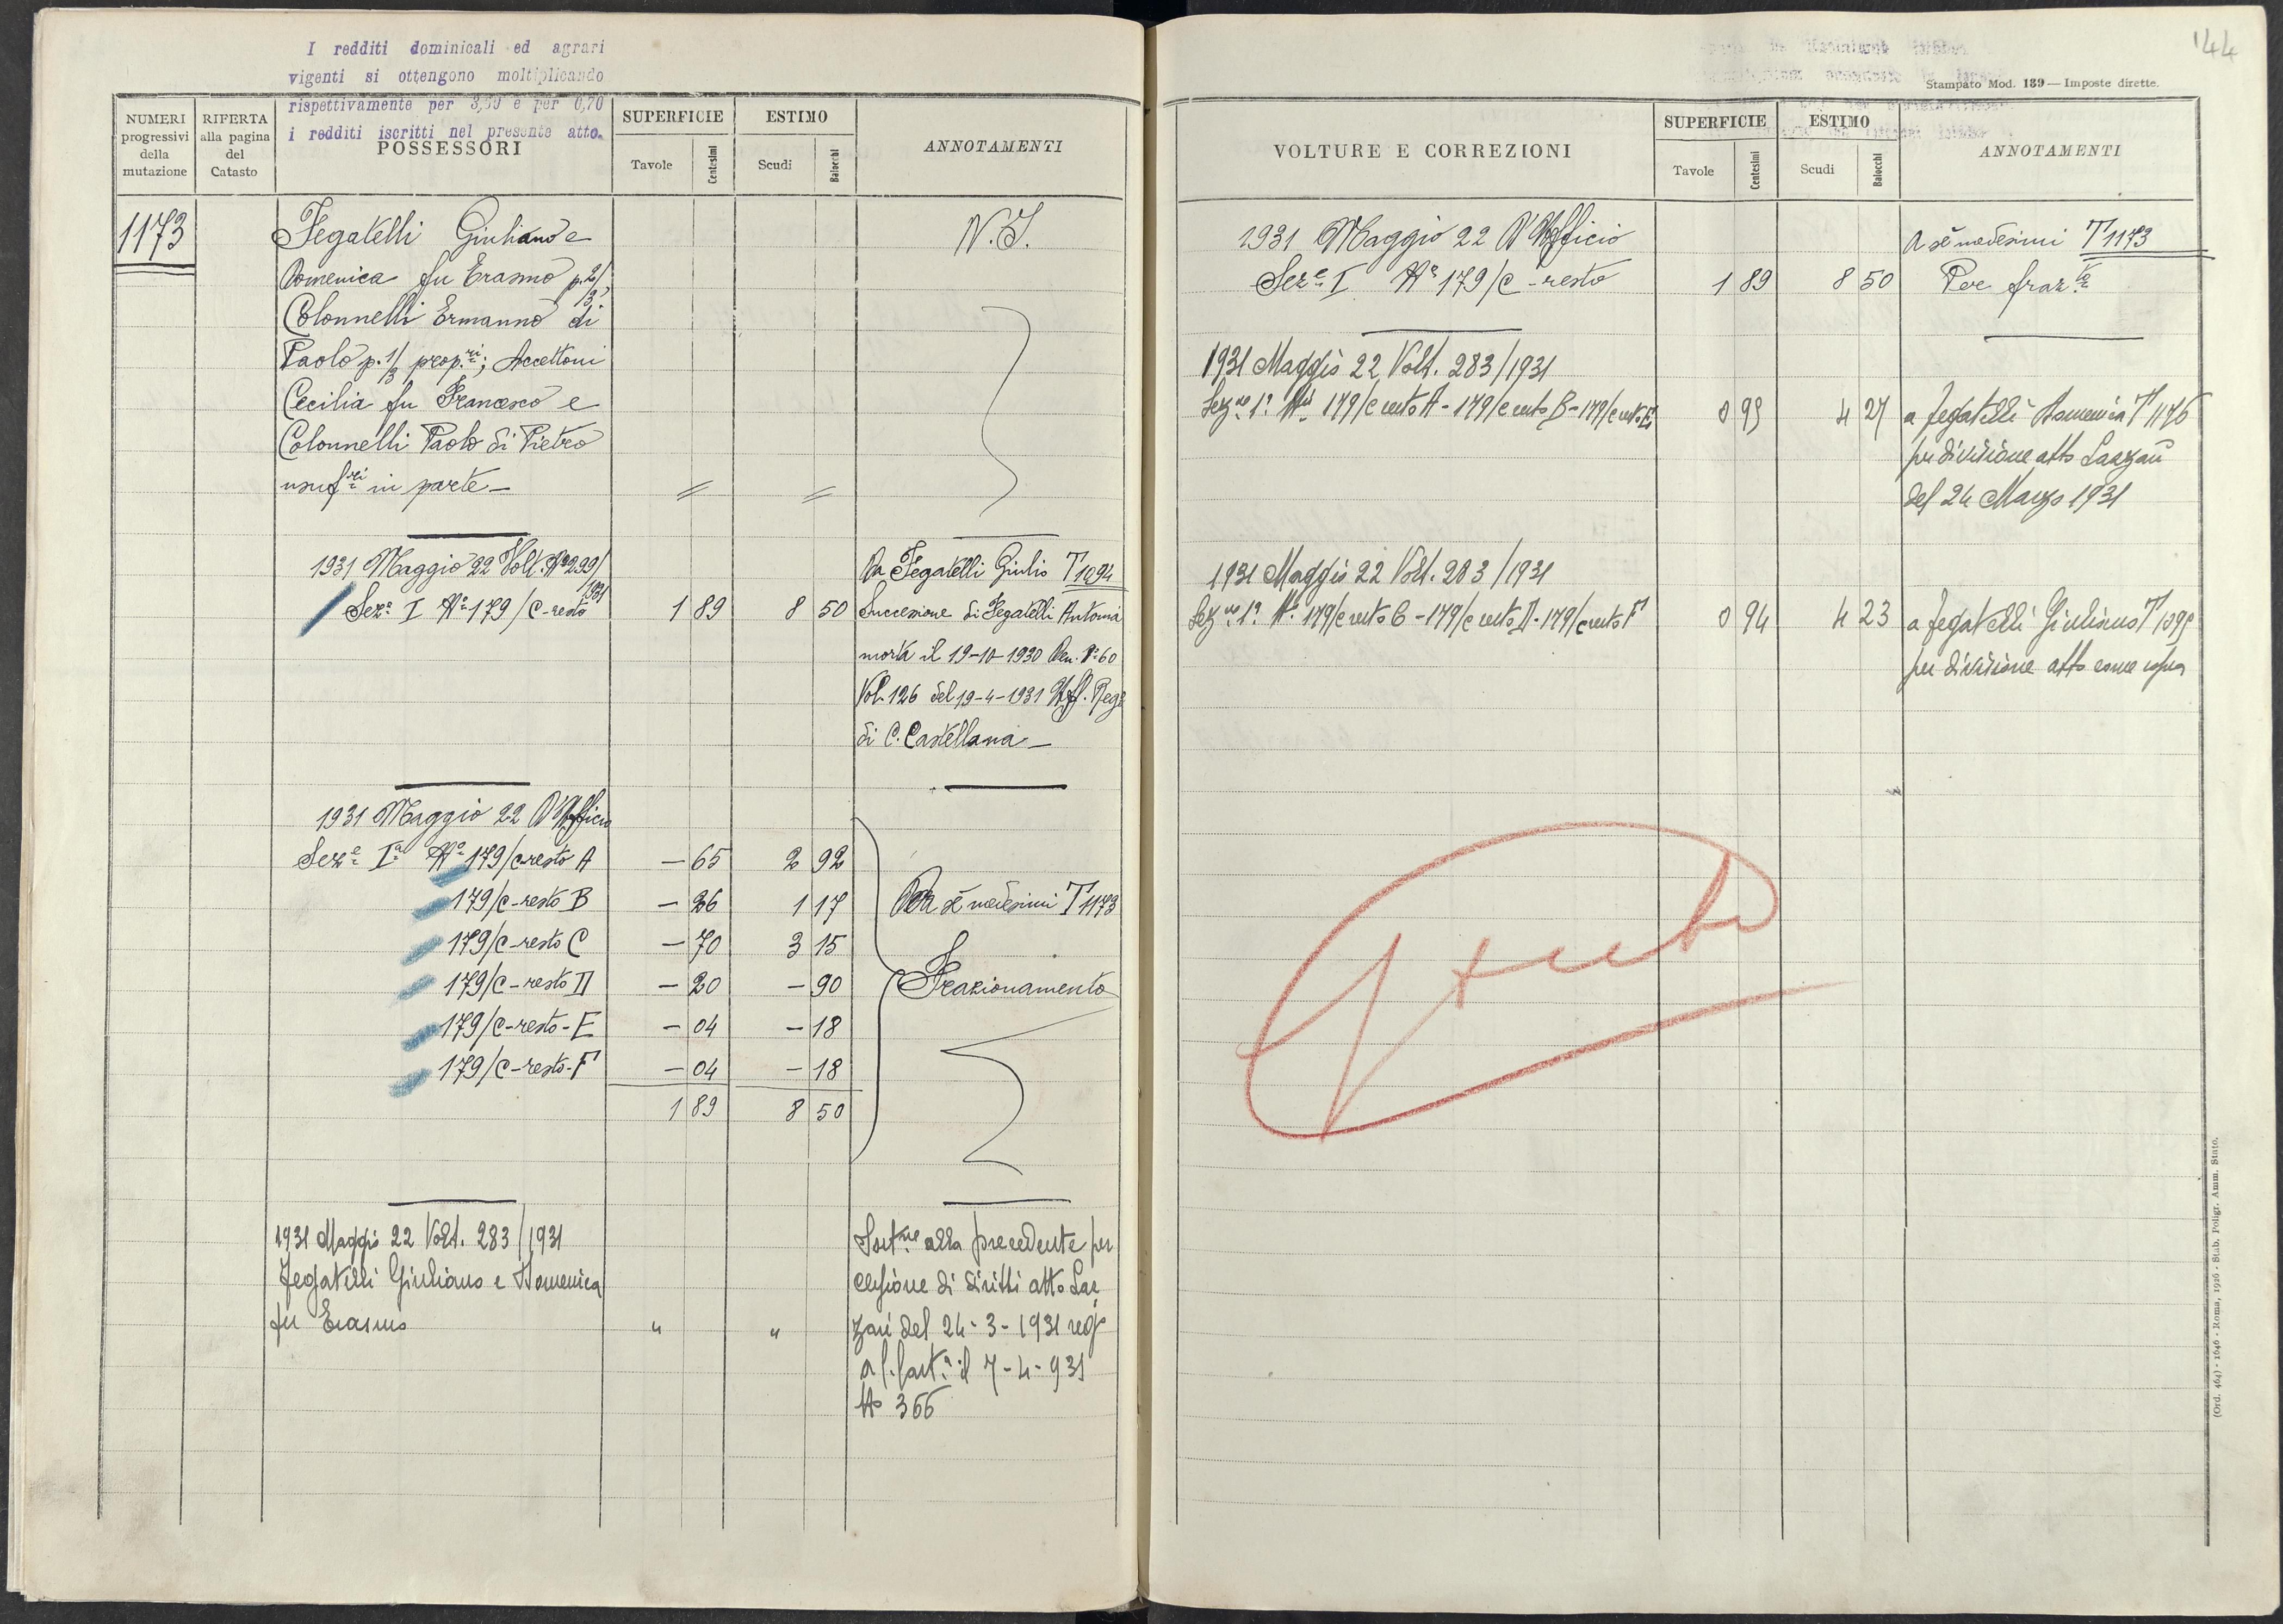 I redditi dominicali ed agrari
vigenti si ottengono moltiplicando
rispettivamente per 3,39 e per 0,70
i redditi iscritti nel presente atto.
NUMERI progressivi della mutazione
RIFERTA alla pagina del Catasto
POSSESSORI
SUPERFICIE
Tavole Centesimi
ESTIMO
Scudi Baiocchi
ANNOTAMENTI
1173
Fegatelli Giuliano e
Domenica fu Erasmo p. 2/3;
Colonnelli Ermanno di
Paolo p. 1/3 prop.ri; Accettoni
Cecilia fu Francesco e
Colonnelli Paolo di Pietro
usuf.ri in parte —
N.I.
1931 Maggio 22 Volt. No 299/1931
Seze I No 179/C-resto 1 89 8 50
Da Fegatelli Giulio T 1094
Successione di Fegatelli Antonia
morta il 19-10-1930 Den. No 60
Vol. 126 del 19-4-1931 Uff. Rego
di C. Castellana —
1931 Maggio 22 D'Ufficio
Seze Ia No 179/C-resto A — 65 2 92
179/C-resto B — 26 1 17
179/C-resto C — 70 3 15
179/C-resto D — 20 — 90
179/C-resto-E — 04 — 18
179/C-resto-F — 04 — 18
1 89 8 50
Da sè medesimi T 1173
Frazionamento
1931 Maggio 22 Volt. 283/1931
Fegatelli Giuliano e Domenica
fu Erasmo " "
alla precedente per
cessione di diritti atto Laz
zari del 24-3-1931 rego
il 7-4-931
No 366
144
Stampato Mod. 139 — Imposte dirette.
VOLTURE E CORREZIONI
SUPERFICIE
Tavole Centesimi
ESTIMO
Scudi Baiocchi
ANNOTAMENTI
1931 Maggio 22 D'Ufficio
Seze I No 179/C-resto 1 89 8 50
A sè medesimi T 1173
Per fraz.to
1931 Maggio 22 Volt. 283/1931
Sezne 1a Ni 179/C resto A - 179/C resto B - 179/C resto E 0 95 4 27
a Fegatelli Domenica T 1176
per divisione atto Lazzari
del 24 Marzo 1931
1931 Maggio 22 Volt. 283/1931
Sezne 1a N. 179/C resto C - 179/C resto D - 179/C resto F 0 94 4 23
a Fegatelli Giuliano T 1095
per divisione atto come sopra
(Ord. 464) - 1646 - Roma, 1926 - Stab. Poligr. Amm. Stato.